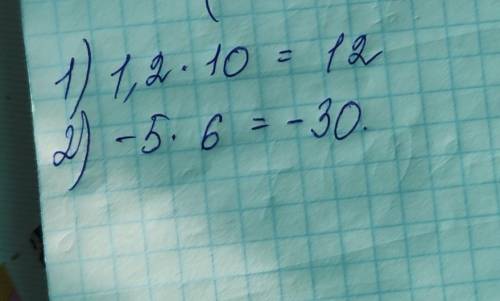 1) 1,2 · 10 = 12
2) -5 · 6 = -30.